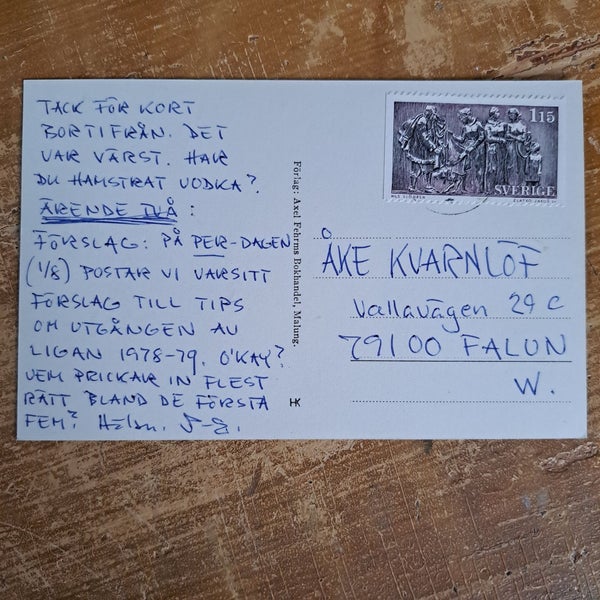 TACK FÖR KORT
BORTIFRÅN. DET
VAR VÄRST. HAR
DU HAMSTRAT VODKA?
ÄRENDE TVÅ:
FÖRSLAG: PÅ PER-DAGEN
(1/8) POSTAR VI VARSITT
FÖRSLAG TILL TIPS
OM UTGÅNGEN AV
LIGAN 1978-79. O'KAY?
VEM PRICKAR IN FLEST
RÄTT BLAND DE FÖRSTA
FEM?
Förlag: Axel Fehrms Bokhandel, Malung.
HK
115
SVERIGE
ÅKE KVARNLÖF
Vallavägen 29 C
79100 FALUN
W.